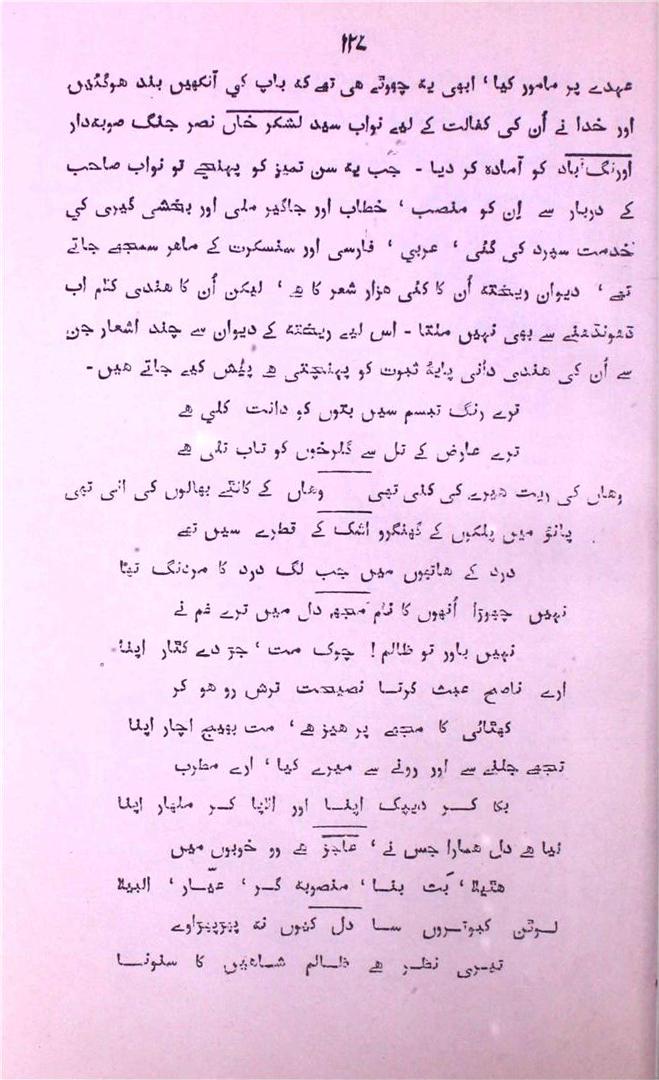 ۱۲۷
عہدے پر مامور کیا ' ابھی یہ چھوٹے ھی تھے کہ باپ کی آنکھیں بند ھوگئیں
اور خدا نے اُن کی کفالت کے لیے نواب سید لشکر خاں نصر جنگ صوبہدار
اورنگ آباد کو آمادہ کر دیا - جب یہ سن تمیز کو پہنچے تو نواب صاحب
کے دربار سے اِن کو منصب ' خطاب اور جاگیر ملی اور بخشی گیری کی
خدمت سپرد کی گئی ' عربی ' فارسی اور سنسکرت کے ماھر سمجھے جاتے
تھے ' دیوان ریختہ اُن کا کئی ھزار شعر کا ھے ' لیکن اُن کا ھندی کلام اب
ڈھونڈھنے سے بھی نہیں ملتا - اس لیے ریختہ کے دیوان سے چند اشعار جن
سے اُن کی ھندی دانی پایۂ ثبوت کو پہنچتی ھے پیش کیے جاتے ھیں -
ترے رنگ تبسم سیں بتوں کو دانت کلی ھے
ترے عارض کے تل سے گلرخوں کو تاب تلی ھے
وھاں کی ریت ھیرے کی کنی تھی وھاں کے کانٹے بھالوں کی انی تھی
پانؤ میں پلکوں کے گھنگرو اشک کے قطرے سیں تھے
درد کے ھاتھوں میں جب لگ درد کا مردنگ تھا
نہیں چھوڑا اُنھوں کا نام مجھ دل میں ترے غم نے
نہیں باور تو ظالم! چوک مت ' جڑ دے کٹار اپنا
ارے ناصح عبث کرتا نصیحت ترش رو ھو کر
کھٹائی کا مجھے پر ھیز ھے ' مت بھیج اچار اپنا
تجھے جلنے سے اور رونے سے میرے کیا ' ارے مطرب
بکا کر دیپک اپنا اور الاپا کر ملھار اپنا
لیا ھے دل ھمارا جس نے ' عاجز ھے وو خوبوں میں
ھٹیلا ' بُت بنا ' منصوبہ گر ' عیّار ' البیلا
لوٹن کبوتروں سا دل کیوں نہ پھڑپھڑاوے
تیری نظر ھے ظالم شاھیں کا سلونا